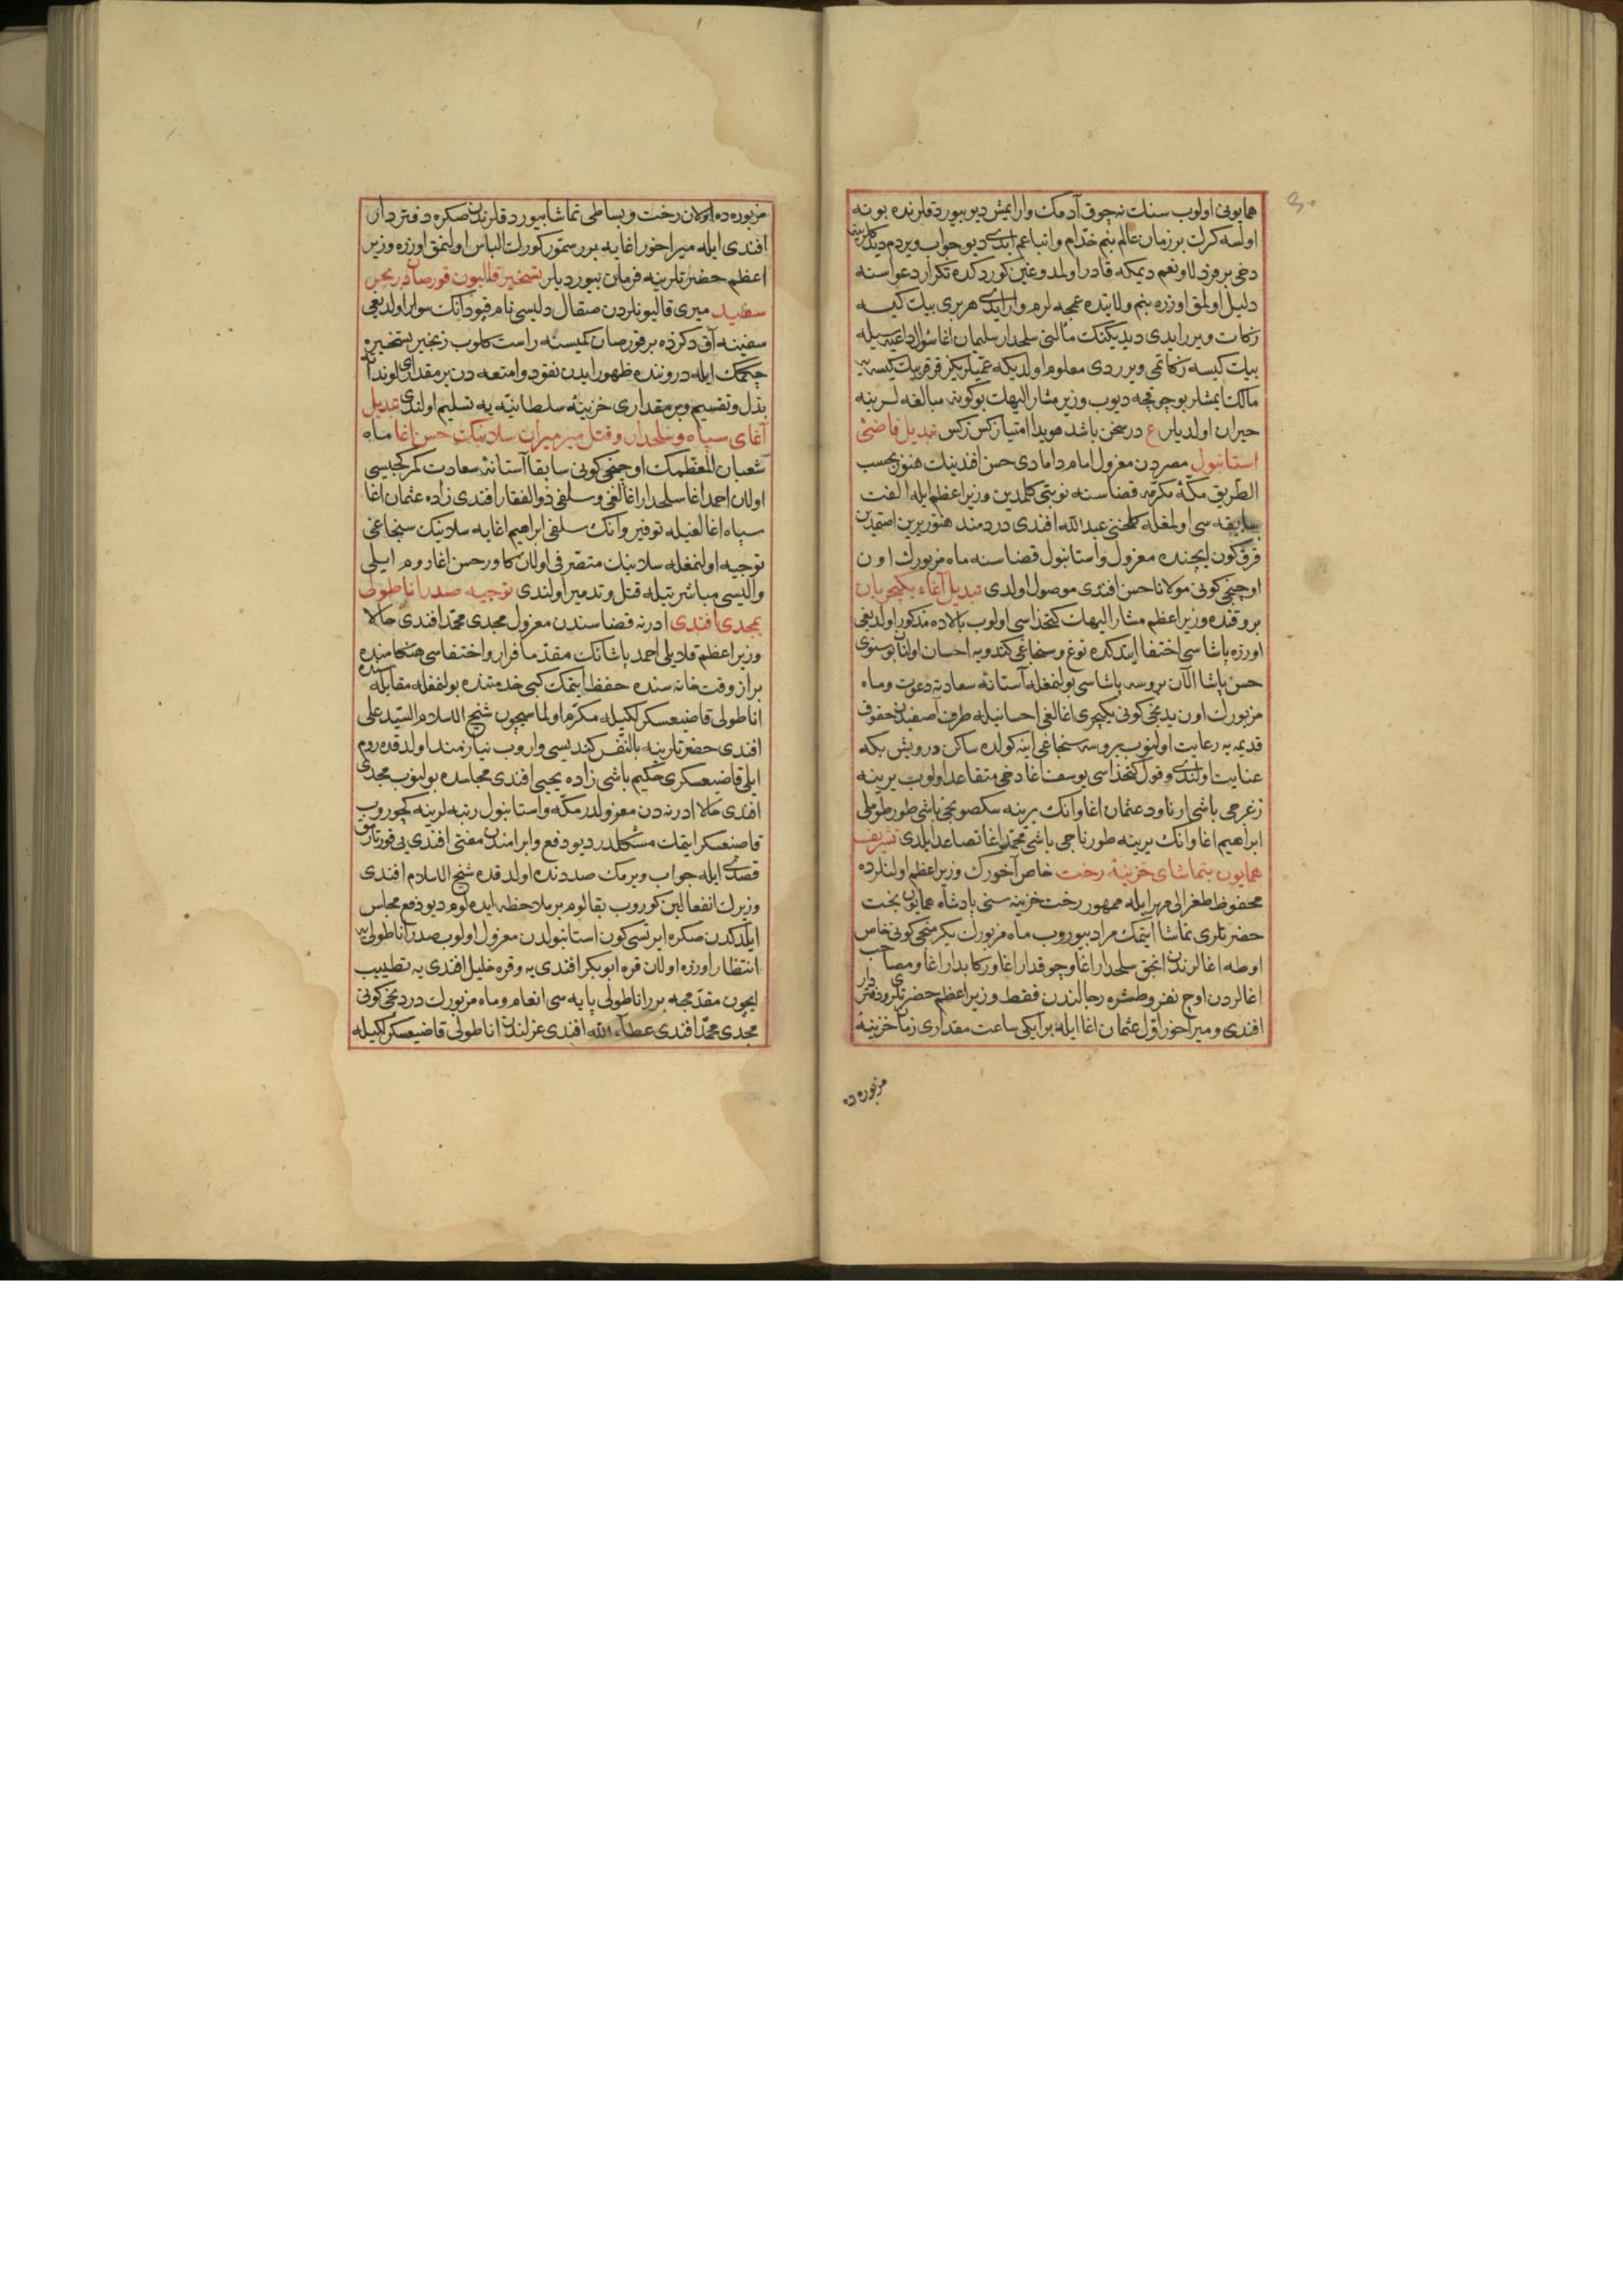 همایونی اولوب سنك نه چوق آدمك وار ایمش دیو بیوردقلرنده بو نه
اولسه کرك بر زمان عالم بنم خدام و اتباعم ایدی دیو جواب ویردم دیدکلرینه
دخی بر فرد لا و نعم دیمکه قادر اولمدوغین کوردکده تکرار دعواسنه
دلیل اولمق اوزره بنم ولایتده عمجه لرم وار ایدی هر بری بیك کیسه
زکات ویرر ایدی دیدیکنك مآلنی سلحدار سلیمان اغا سؤال داعیه سیله
بیك کیسه زکاتمی ویرردی معلوم اولدیکه عمیلریکز قرق بیك کیسه یه
مالك ایمشلر بو چوقجه دیوب وزیر مشار الیهك بو کونه مبالغه لرینه
حیران اولدیلر ع در سخن باشد هویدا امتیاز کس زکس تبدیل قاضئ
استانبول مصردن معزول امام دامادی حسن افندینك هنوز بحسب
الطریق مکۀ مکرمه قضاسنه نوبتی کلمدین وزیر اعظم ایله الفت
سابقه سی اولمغله کلخنی عبد الله افندی دردمند هنوز یرین اصتمدین
قرق کون ایچنده معزول و استانبول قضاسنه ماه مزبورك اون
اوچنجی کونی مولانا حسن افندی موصول اولدی تبدیل آغاء یکیچریان
بروقتده وزیر اعظم مشار الیهك کتخداسی اولوب بالاده مذکور اولدیغی
اوزره پاشاسی اختفا ایتدکده توغ و سنجاغی کندویه احسان اولنان بوسنوی
حسن پاشا الآن بروسه پاشاسی بولنمغله آستانۀ سعادته دعوت و ماه
مزبورك اون یدنجی کونی یکیچری اغالغی احسانیله طرف آصفیدن حقوق
قدیمه یه رعایت اولنوب بروسه سنجاغی اینه کولده ساکن درویش بکه
عنایت اولندی و قول کتخداسی یوسف اغا دخی متقاعد اولوب یرینه
زغرجی باشی ارناود عثمان اغا و انك یرینه سکصونجی باشی طورطوملی
ابراهیم اغا و انك یرینه طورناجی باشی محمد اغا تصاعد ایلدی تشریف
همایون بتماشای خزینۀ رخت خاص آخورك وزیر اعظم اولنلرده
محفوظ طغرالی مهر ایله ممهور رخت خزینه سنی پادشاه همایون بخت
حضرتلری تماشا ایتمك مراد بیوروب ماه مزبورك یکرمنجی کونی خاص
اوطه اغالرندن انجق سلحدار اغا و چوقدار اغا و رکابدار اغا و مصاحب
اغالردن اوچ نفر و طشره رجالندن فقط وزیر اعظم حضرتلری و دفتردار
افندی و میراخور اول عثمان اغا ایله بر ایکی ساعت مقداری زمان خزینۀ
مزبوره ده
مزبوره ده اولان رخت و بساطی تماشا بیوردقلرندن صکره دفتردار
افندی ایله میراخور اغایه برر سمور کورك الباس اولنمق اوزره وزیر
اعظم حضرتلرینه فرمان بیوردیلر تسخیر قالیون قورصان در بحر
سفید میری قالیونلردن صقال دلیسی نام قپودانك سوار اولدیغی
سفینه آق دکزده بر قورصان کمیسنه راست کلوب زنجیر تسخیره
چکمك ایله دروننده ظهور ایدن نقود و امتعه دن بر مقداری لونداته
بذل و تقسیم و بر مقداری خزینۀ سلطانیه یه تسلیم اولندی تبدیل
آغای سپاه و سلحدار و قتل میرمیران سلانیك حسن اغا ماه
شعبان المعظمك اوچنجی کونی سابقا آستانۀ سعادت کمرکجیسی
اولان احمد اغا سلحدار اغالغی و سلفی ذو الفقار افندی زاده عثمان اغا
سپاه اغالغیله توقیر و انك سلفی ابراهیم اغایه سلانیك سنجاغی
توجیه اولنمغله سلانیك متصرفی اولان کاور حسن اغا روم ایلی
والیسی مباشرتیله قتل و تدمیر اولندی توجیه صدر اناطولی
بمجدی افندی ادرنه قضاسندن معزول مجدی محمد افندی حالا
وزیر اعظم قلایلی احمد پاشانك مقدما فرار و اختفاسی هنکامنده
براز وقت خانه سنده حفظ ایتمك کبی خدمتنده بولنغله مقابله سنده
اناطولی قاضیعسکرلکیله مکرم اولماسیچون شیخ الاسلام السید علی
افندی حضرتلرینه بالنفس کندیسی واروب نیازمند اولدقده روم
ایلی قاضیعسکری حکیم باشی زاده یحیی افندی مجلسده بولنوب مجدی
افندی حالا ادرنه دن معزولدر مکه و استانبول رتبه لرینه کچوروب
قاضیعسکر ایتمك مشکلدر دیو دفع و ابرامندن مفتی افندی یی قورتارمق
قصدی ایله جواب ویرمك صددنده اولدقده شیخ الاسلام افندی
وزیرك انفعالین کوروب بقالوم بر ملاحظه ایده لوم دیو دفع مجلس
ایلدکدن صکره ایرتسی کون استانبولدن معزول اولوب صدر اناطولی یه
انتظار اوزره اولان قره ابو بکر افندی یه و قره خلیل افندی یه تطییب
ایچون مقدمجه برر اناطولی پایه سی انعام و ماه مزبورك دردنجی کونی
مجدی محمد افندی عطاء الله افندی عزلندن اناطولی قاضیعسکرلکیله